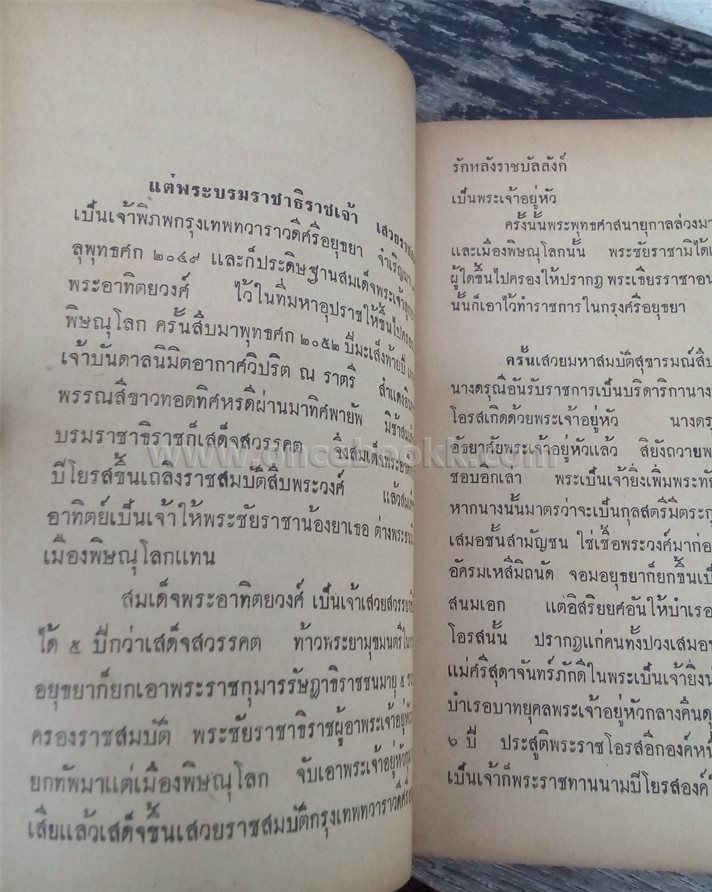 แต่พระบรมราชาธิราชเจ้า
เป็นเจ้าพิภพกรุงเทพทวาราวดีศรีอยุธยา จำเริญมา
ลุพุทธศก ๒๐๔๙ และก็ประดิษฐานสมเด็จพระเจ้าลูก
พระอาทิตยวงศ์ ไว้ในที่มหาอุปราชให้ขึ้นไปครอง
พิษณุโลก ครั้นสืบมาพุทธศก ๒๐๕๒ ปีมะเส็งท้ายปี
เจ้าบันดาลนิมิตอากาศวิปริต ณ ราตรี สำแดง
พรรณสีขาวทอดทิศหรดีผ่านมาทิศพายัพ มิช้า
บรมราชาธิราชก็เสด็จสวรรคต จึงสมเด็จพระ
ปิโยรสขึ้นเถลิงราชสมบัติสืบพระวงศ์ แล้ว
อาทิตย์เป็นเจ้าให้พระชัยราชาน้องยาเธอ ต่าง
เมืองพิษณุโลกแทน
สมเด็จพระอาทิตยวงศ์ เป็นเจ้าเสวย
ได้ ๕ ปีกว่าเสด็จสวรรคต ท้าวพระยามุขมนตรี
อยุธยาก็ยกเอาพระราชกุมารรัษฎาธิราชชนมายุ ๕
ครองราชสมบัติ พระชัยราชาธิราชผู้อาพระเจ้าอยู่หัว
ยกทัพมาแต่เมืองพิษณุโลก จับเอาพระเจ้าอยู่หัว
เสียแล้วเสด็จขึ้นเสวยราชสมบัติกรุงเทพทวาราวดี
รักหลังราชบัลลังก์
เป็นพระเจ้าอยู่หัว
ครั้งนั้นพระพุทธศาสนายุกาลล่วงมา
และเมืองพิษณุโลกนั้น พระชัยราชามิได้
ผู้ใดขึ้นไปครองให้ปรากฏ พระเธียรราชา
นั้นก็เอาไว้ทำราชการในกรุงศรีอยุธยา
ครั้นเสวยมหาสมบัติสุขารมณ์สืบ
นางดรุณีอันรับราชการเป็นบริดาริกานาง
โอรสเกิดด้วยพระเจ้าอยู่หัว นาง
อัธยาศัยพระเจ้าอยู่หัวแล้ว สิยังถวาย
ชอบอีกเล่า พระเป็นเจ้ายิ่งเพิ่มพระทัย
หากนางนั้นมาตรว่าจะเป็นกุลสตรีมีตระกู
เสมอชั้นสามัญชน ใช่เชื้อพระวงศ์มาก่อ
อัครมเหสีมิถนัด จอมอยุธยาก็ยกขึ้น
สนมเอก แต่อิสริยยศอันให้บำเรอ
โอรสนั้น ปรากฏแก่คนทั้งปวงเสมอ
แม่ศรีสุดาจันทร์ภักดีในพระเป็นเจ้ายิ่ง
บำเรอบาทยุคลพระเจ้าอยู่หัวกลางคืน
๖ ปี ประสูติพระราชโอรสอีกองค์หนึ่
เป็นเจ้าก็พระราชทานนามปิโยรสองค์
www.oncebookk.com